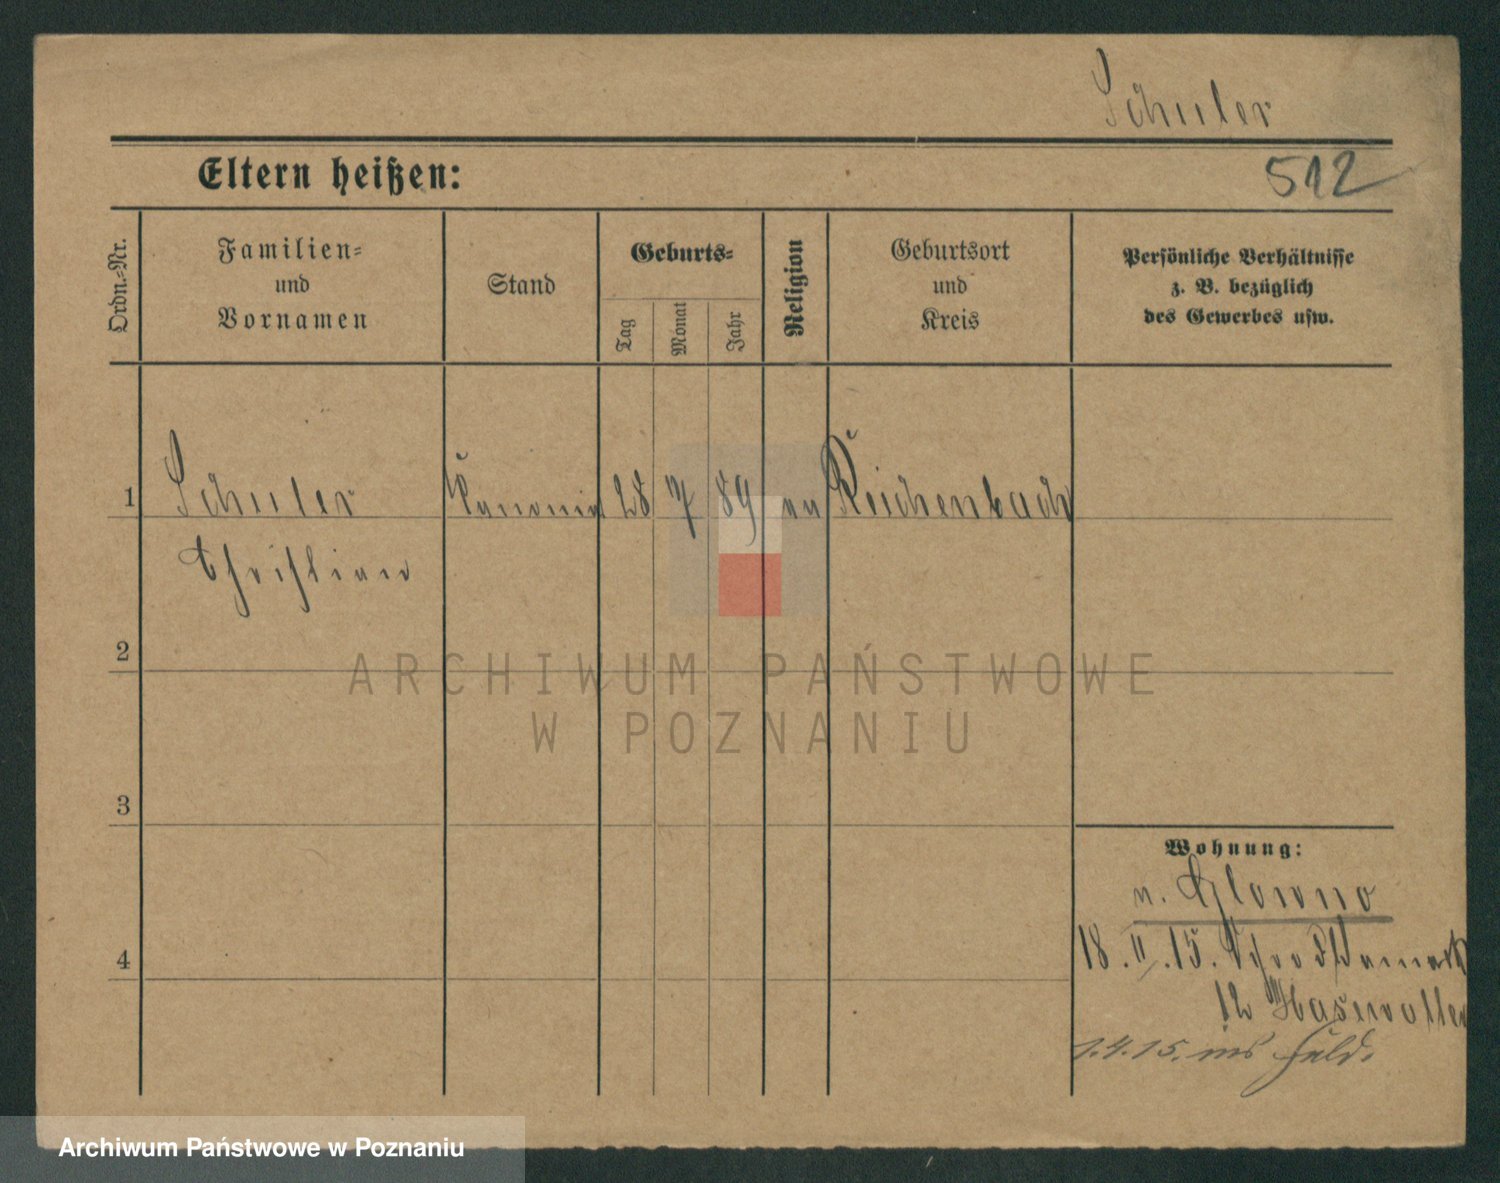 Schuler
Eltern heißen:
512
Ordn.-Nr.
Familien-
und
Vornamen
Stand
Geburts-
Tag
Monat
Jahr
Religion
Geburtsort
und
Kreis
Persönliche Verhältnisse
z. B. bezüglich
des Gewerbes usw.
1
Schuler
Kanonier
28
7
89
Reichenbach
Christian
2
ARCHIWUM PAŃSTWOWE
W POZNANIU
3
Wohnung:
n. Glowno
4
18. II. 15.
12
1.4.15. ins Feld.
Archiwum Państwowe w Poznaniu